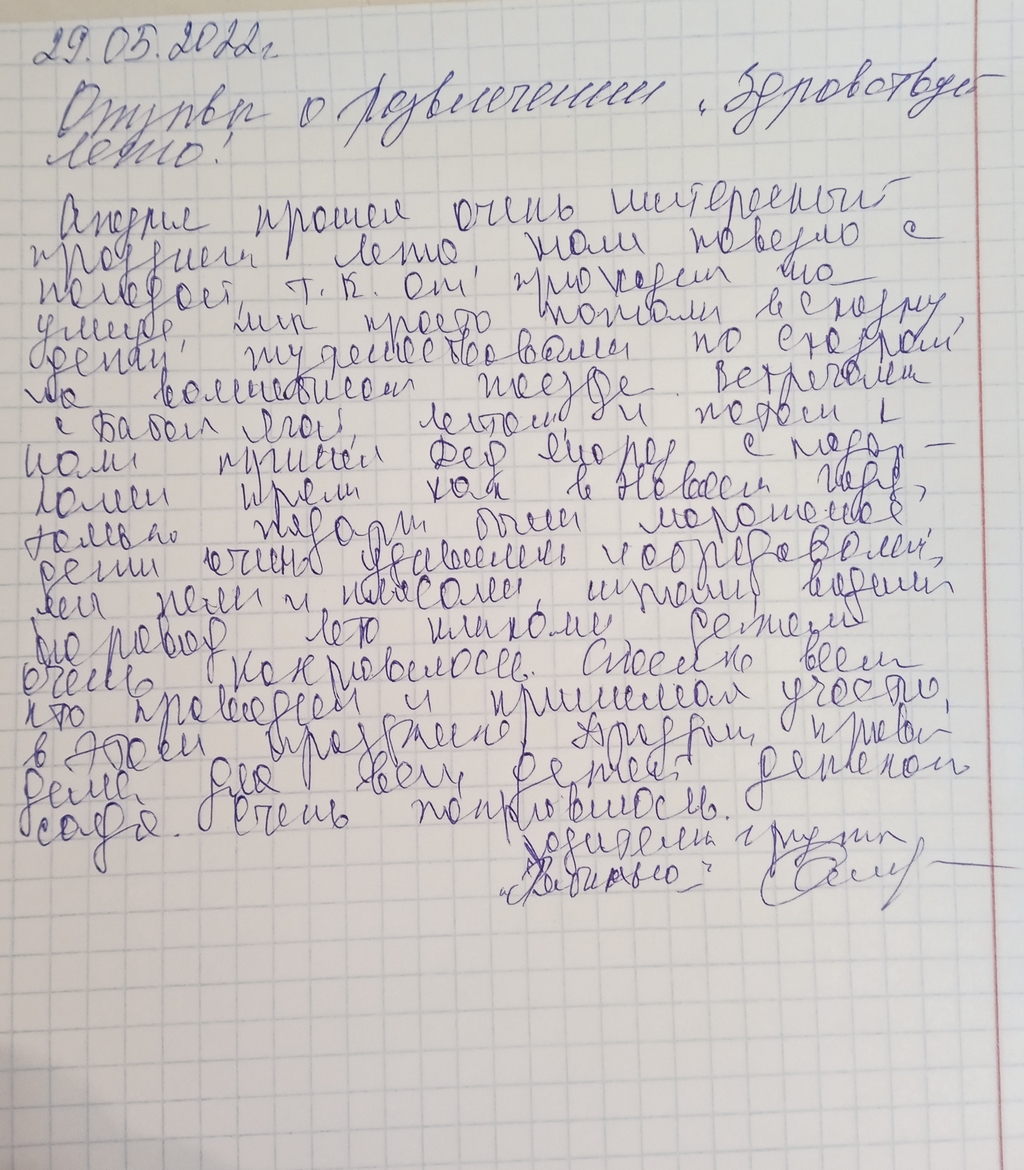 29.05.2022г
Отзыв о развлечении „Здравствуй
лето!
прошел очень интересный
праздник лета нам повезло с
погодой, т.к. он проходил на
улице, мы просто попали в сказку,
дети путешествовали по сказкам
на волшебном поезде. Встречали
с Бабой Ягой, летом и потом к
нам пришел Дед Мороз с подар-
ками прям как в Новый год,
только подарки были мороженое,
дети очень удивились и обрадовались,
мы пели и плясали, играли, водили
хоровод, лето кликали, детям
очень понравилось. Спасибо всем
кто проводил и принимал участие,
в этом празднике. Праздник прове-
дели для всех детей детского
сада. Очень понравилось.
родители группы